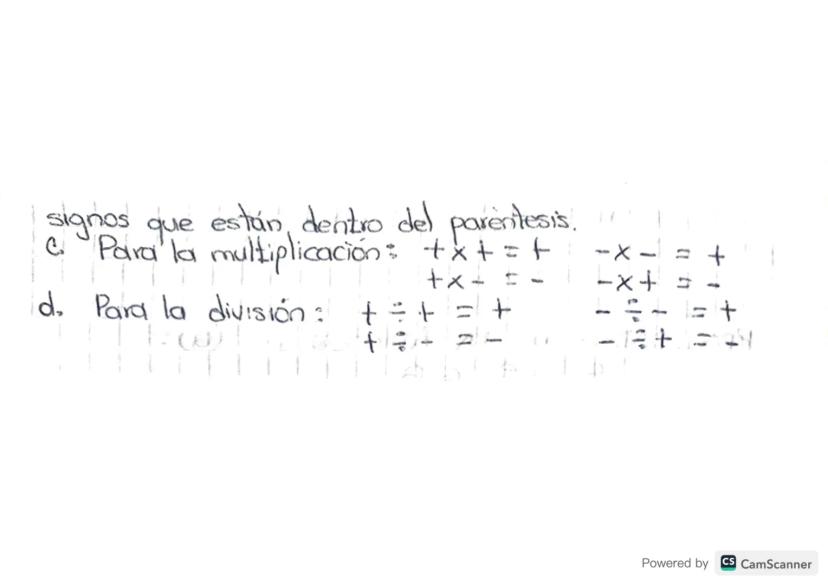 signos que están dentro del paréntesis.
c. Para la multiplicación: + x + = + - x - = +
+ x - = - - x + = -
d. Para la división: + ÷ + = + - ÷ - = +
+ ÷ - = - - ÷ + = -
Powered by CS CamScanner